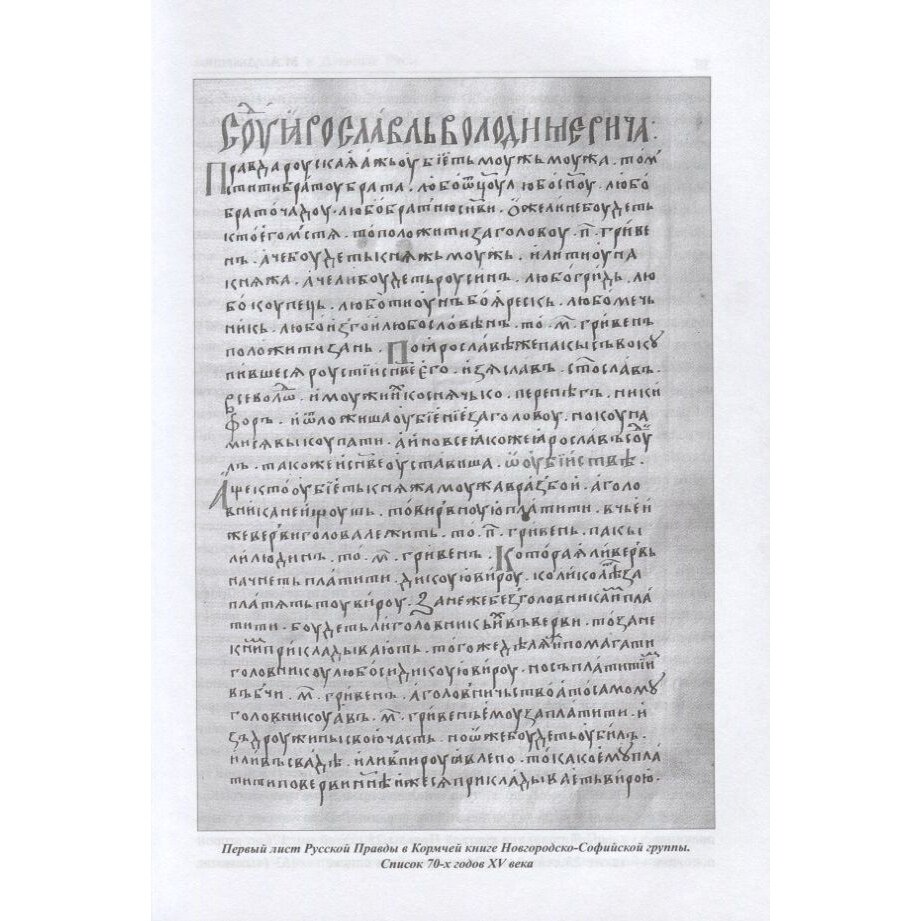 Соуⷣ ꙗрославль володимерича:
Правда роускаꙗ ажь оубіеть моужь моужа. то м
стити братоу брата. любо ѿцоу любо сн҃оу. любо
браточадоу. любо братню сн҃ви. ожели не боудеть
кто его мстѧ. то положити за головоу. п҃. гриве
нъ. аче боудеть кнѧжь моужь. или тиоуна
кнѧжа. аче ли боудеть роусинъ. любо гридь. лю
бо коупець. любо тиоунъ боꙗрескъ. любо мечь
никъ. любо изгои любо словѣнъ. то. м҃. гривенъ
положити за нь. По ꙗрославѣ же пакы съвокоу
пившесѧ роустіи сн҃ве его. изѧславъ. ст҃ославъ.
всеволоⷣ. и моужи иⷯ коснѧчько. перенѣгъ. ники
форъ. и ѿложиша оубіеніе за головоу. но коуна
ми сѧ выкоупати. а ино все ꙗкоже ꙗрославъ соуⷣ
лъ. такоже и сн҃ве оуставиша. ѿ оубійствѣ.
Аще кто оубіеть кнѧжа моужа в разбои. а голо
вника не ищоуть. то вирвноую платити. в чьеи
же верви голова лежить. то. п҃. гривенъ. пакы
ли людинъ. то. м҃. гривенъ. Котораꙗ ли вервь
начнеть платити. дикоую вироу. колико лѣⷮ за
платѧть тоу вироу. Занеже без головника иⷨ пла
тити. боудеть ли головникъ иⷯ въ верви. то зане
к ниⷨ прикладывають. того же дѣлѧ иⷨ помагати
головникоу любо си дикоую вироу. но съплатити иⷨ
въобчи. м҃. гривенъ. а головничьство а то самомоу
головникоу а въ. м҃. гривенъ емоу заплатити. и
зъ дроужины свою часть. но ѡже боудеть оубилъ
или въ свадѣ. или в пироу ꙗвлено. то такоемоу пла
тити по верви нн҃ѣ иже сѧ прикладывають вирою.
Первый лист Русской Правды в Кормчей книге Новгородско-Софийской группы.
Список 70-х годов XV века